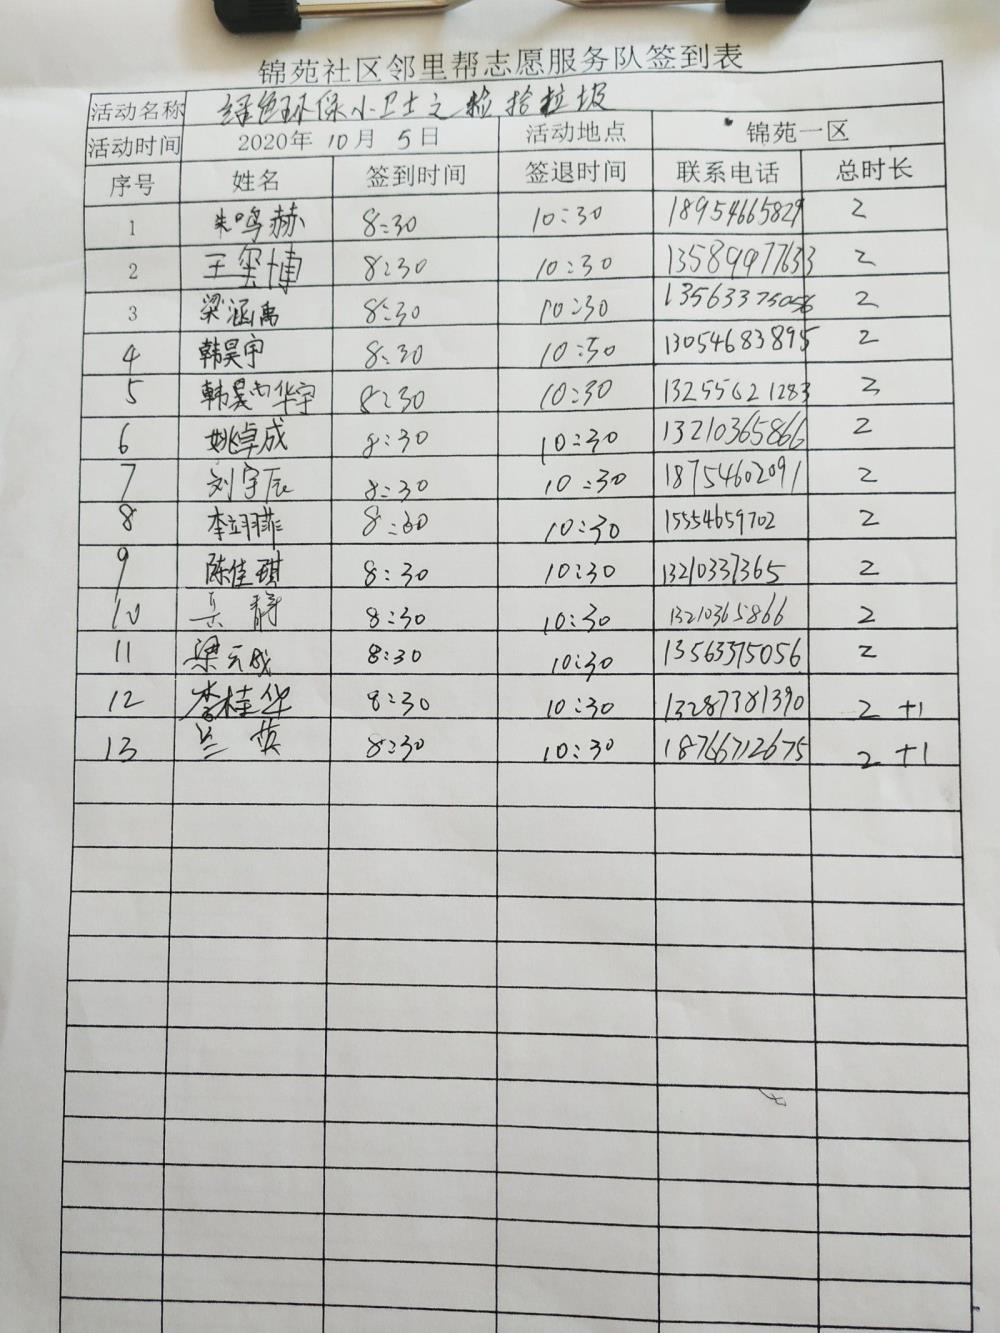 锦苑社区邻里帮志愿服务队签到表
活动名称 绿色环保小卫士之捡拾垃圾
活动时间 2020年 10月 5日 活动地点 锦苑一区
序号 姓名 签到时间 签退时间 联系电话 总时长
1 朱鸣赫 8:30 10:30 18954665829 2
2 王玺博 8:30 10:30 13589977633 2
3 梁涵禹 8:30 10:30 13563375056 2
4 韩昊宇 8:30 10:30 13054683895 2
5 韩昊 华宇 8:30 10:30 13255621283 2
6 姚卓成 8:30 10:30 13210365866 2
7 刘宇辰 8:30 10:30 18754602091 2
8 李翊菲 8:30 10:30 15554659702 2
9 陈佳琪 8:30 10:30 13210337365 2
10 吴静 8:30 10:30 13210365866 2
11 梁云成 8:30 10:30 13563375056 2
12 李桂华 8:30 10:30 13287381390 2 +1
13 兰英 8:30 10:30 18766712675 2 +1